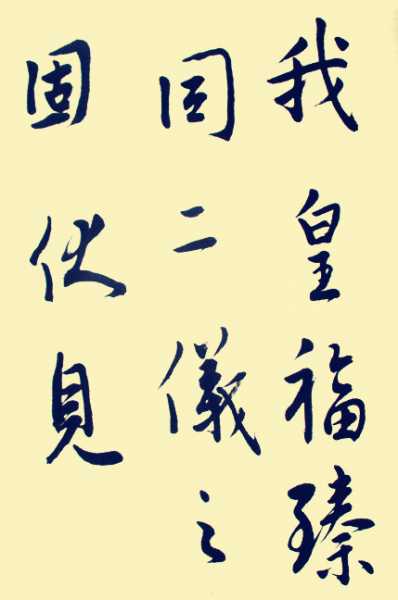 我皇福臻
同二儀之
固伏見